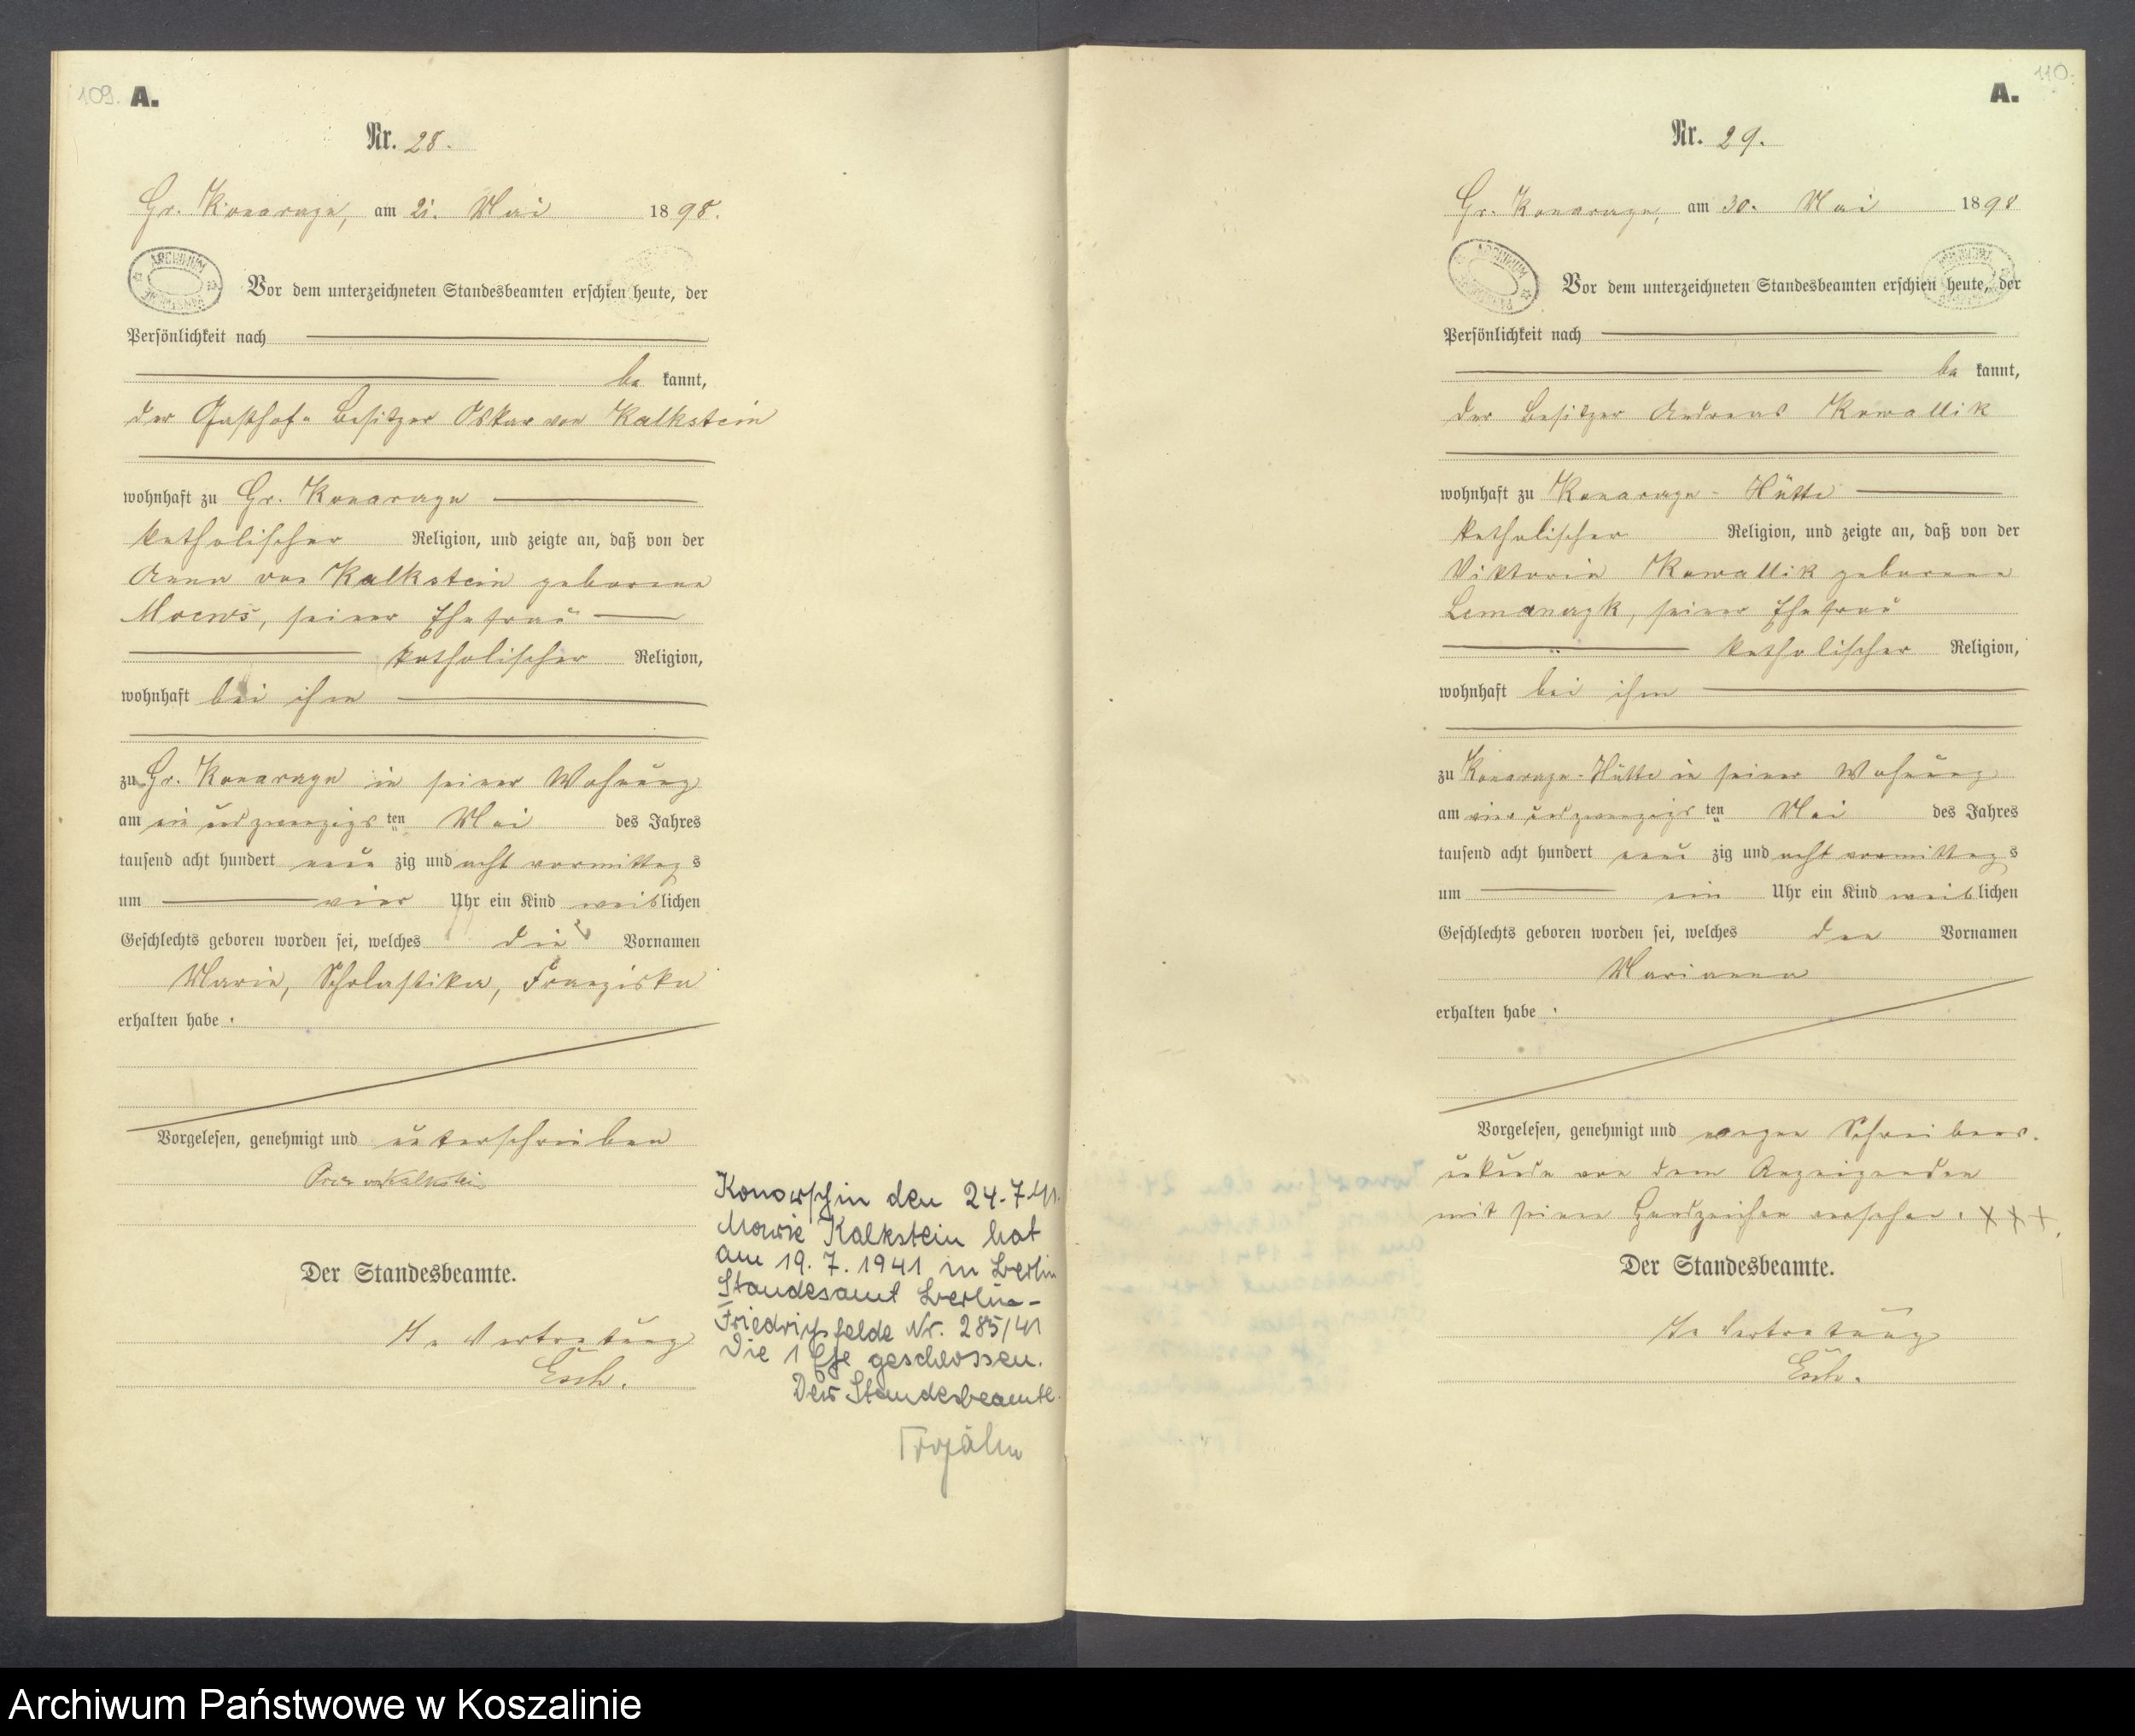 109. A.
Nr. 28.
Gr. Konarzyn, am 21. Mai 1898.
ARCHIWUM
Vor dem unterzeichneten Standesbeamten erschien heute, der
Persönlichkeit nach
be kannt,
der Gasthofs Besitzer Oskar von Kalkstein
wohnhaft zu Gr. Konarzyn
katholischer Religion, und zeigte an, daß von der
Anna von Kalkstein geborene
Moews, seiner Ehefrau
katholischer Religion,
wohnhaft bei ihm
zu Gr. Konarzyn in seiner Wohnung
am ein und zwanzigs ten Mai des Jahres
tausend acht hundert neun zig und acht vormittag s
um vier Uhr ein Kind weib lichen
Geschlechts geboren worden sei, welches die Vornamen
Maria, Scholastika, Franziska
erhalten habe.
Vorgelesen, genehmigt und unterschrieben
von Kalkstein
Der Standesbeamte.
In Vertretung
Esch.
Konarschin den 24.7.41.
Marie Kalkstein hat
am 19.7.1941 in Berlin
Standesamt Berlin-
Friedrichsfelde Nr. 285/41
Die 1 Ehe geschlossen.
Der Standesbeamte.
A. 110.
Nr. 29.
Gr. Konarzyn, am 30. Mai 1898
ARCHIWUM
Vor dem unterzeichneten Standesbeamten erschien heute, der
Persönlichkeit nach
be kannt,
der Besitzer Andreas Kowallik
wohnhaft zu Konarzyn-Hütte
katholischer Religion, und zeigte an, daß von der
Viktoria Kowallik geborene
Lemanczyk, seiner Ehefrau
katholischer Religion,
wohnhaft bei ihm
zu Konarzyn-Hütte in seiner Wohnung
am vier und zwanzigs ten Mai des Jahres
tausend acht hundert neun zig und acht vormittag s
um ein Uhr ein Kind weib lichen
Geschlechts geboren worden sei, welches den Vornamen
Marianna
erhalten habe.
Vorgelesen, genehmigt und wegen Schreibens-
unkunde von dem Anzeigenden
mit seinen Handzeichen versehen. XXX.
Der Standesbeamte.
In Vertretung
Esch.
Archiwum Państwowe w Koszalinie